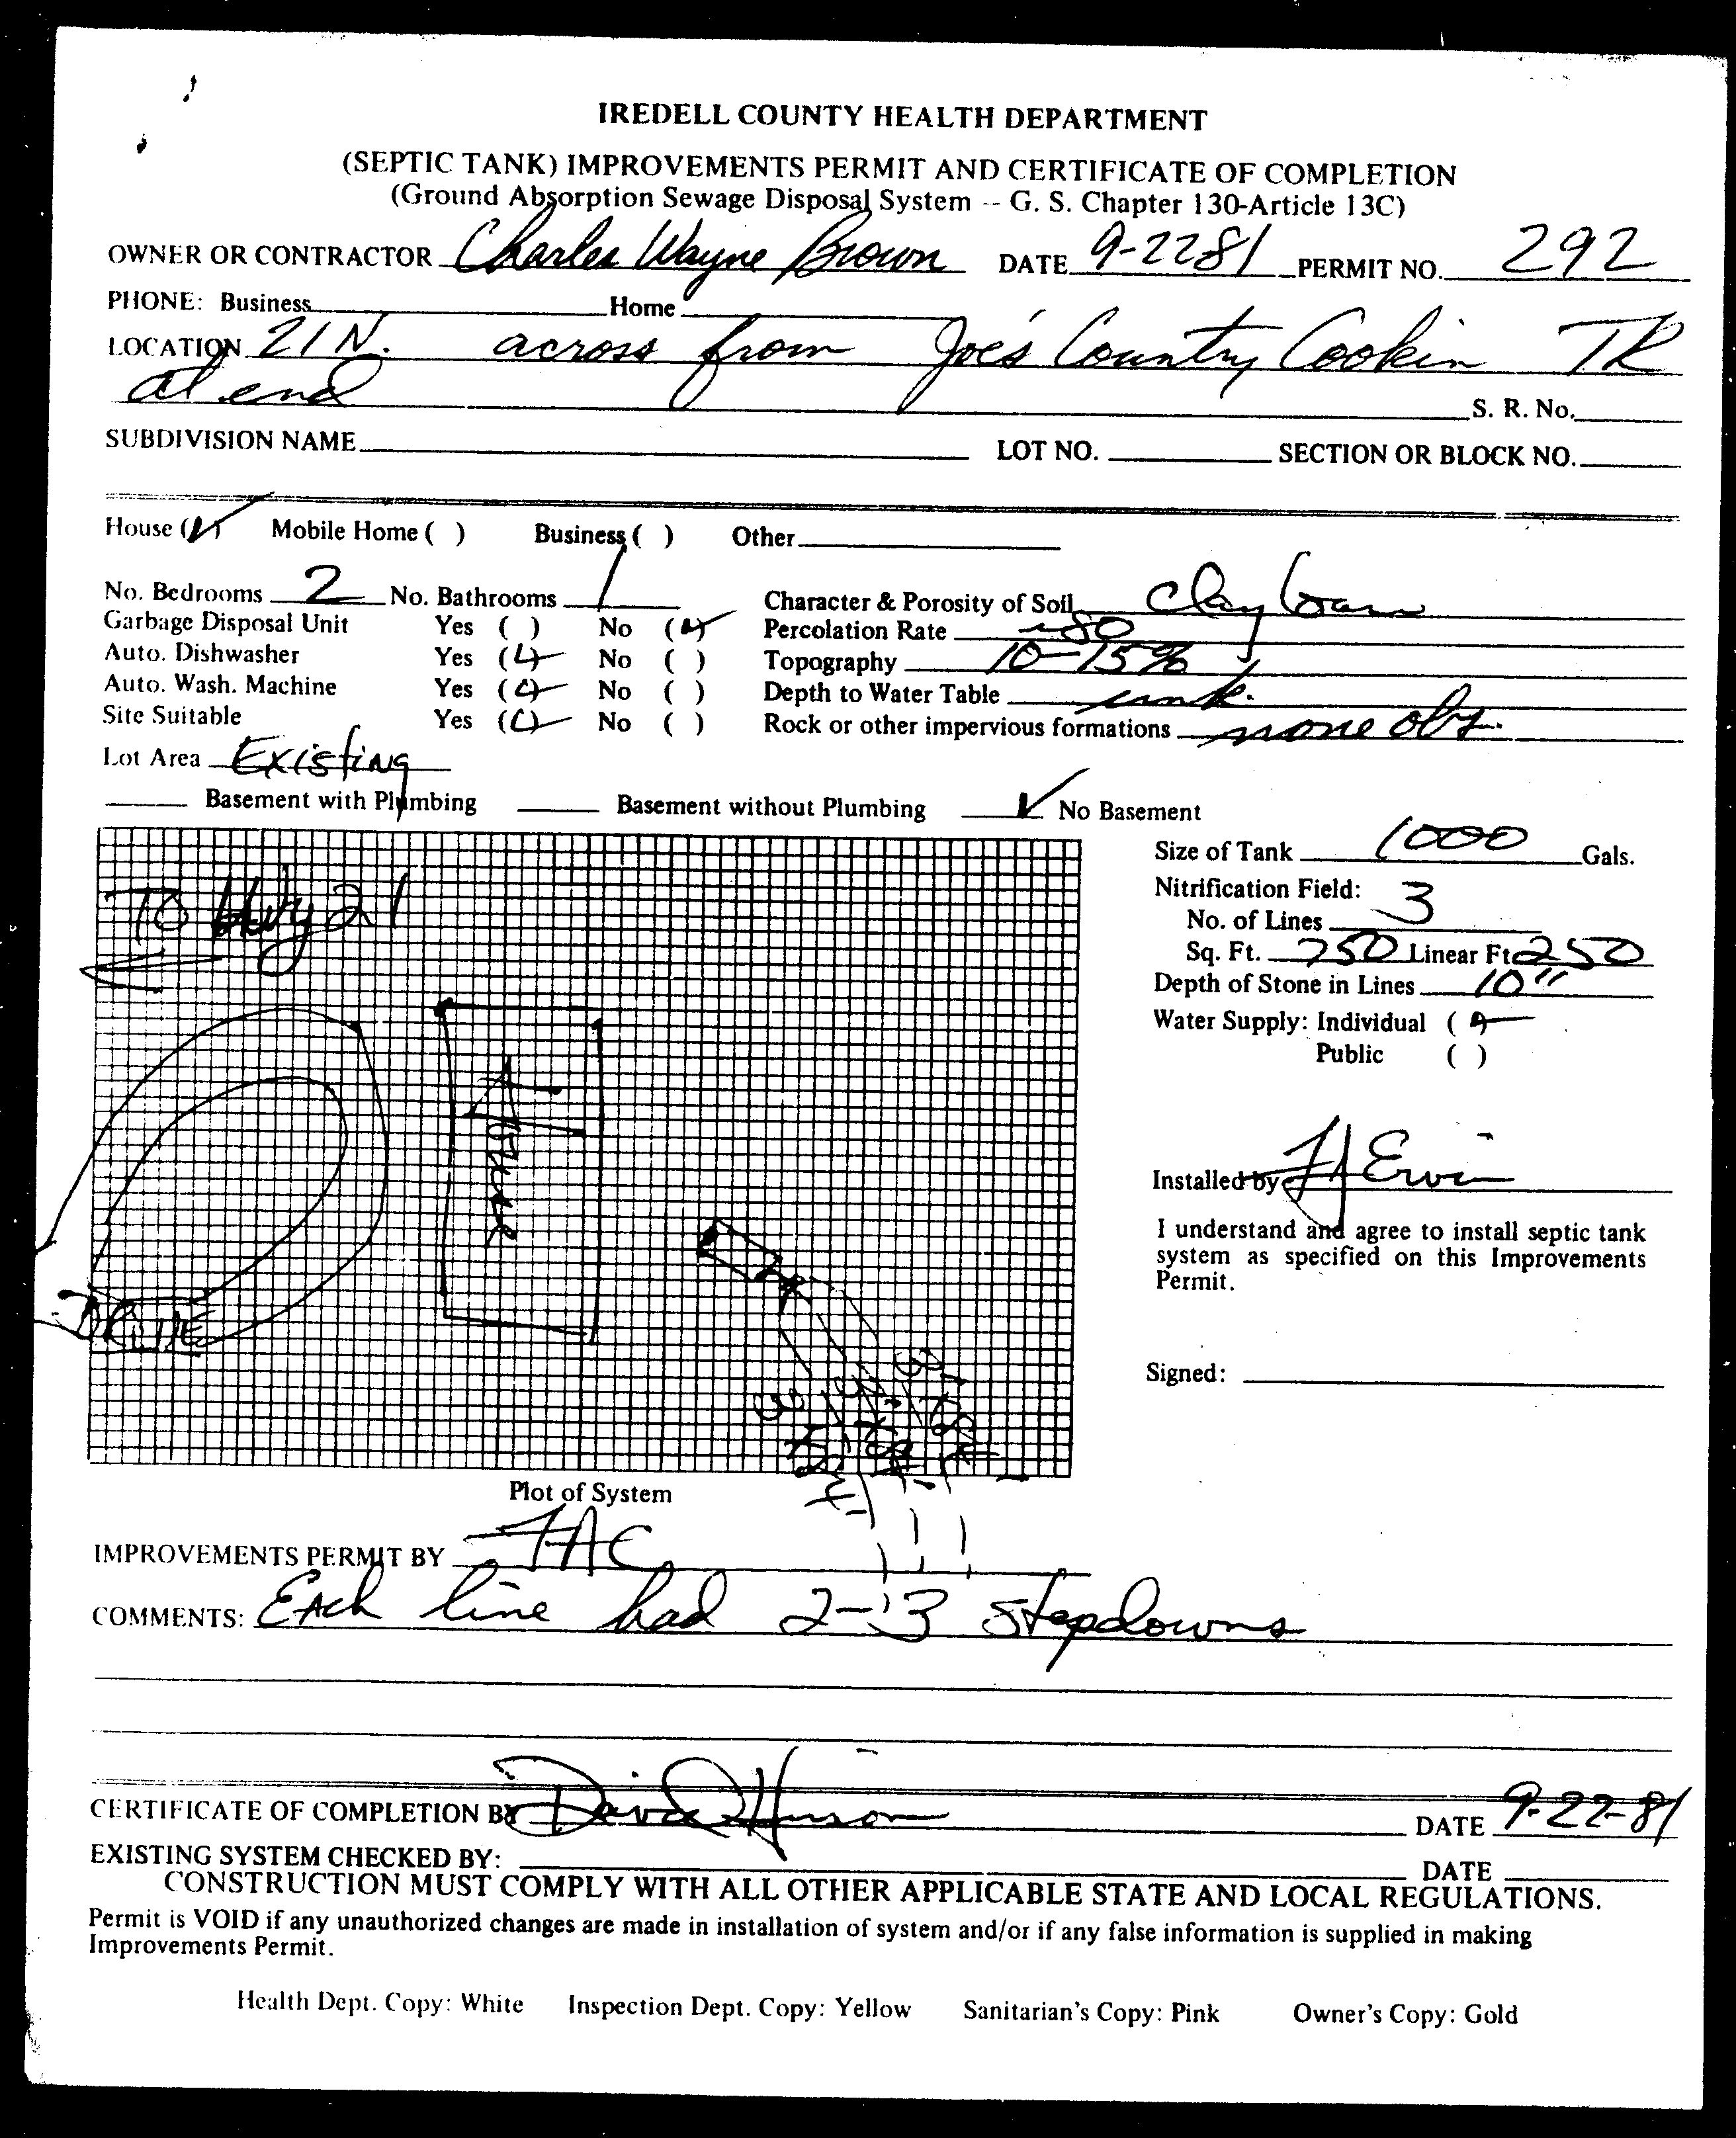 IREDELL COUNTY HEALTH DEPARTMENT
(SEPTIC TANK) IMPROVEMENTS PERMIT AND CERTIFICATE OF COMPLETION
(Ground Absorption Sewage Disposal System -- G. S. Chapter 130-Article 13C)
OWNER OR CONTRACTOR Charles Wayne Brown DATE 9-2281 PERMIT NO. 292
PHONE: Business Home
LOCATION 21N. across from Joe's Country Cookin TR
at end S. R. No.
SUBDIVISION NAME LOT NO. SECTION OR BLOCK NO.
House (✓) Mobile Home ( ) Business ( ) Other
No. Bedrooms 2 No. Bathrooms 1 Character & Porosity of Soil Clay loam
Garbage Disposal Unit Yes ( ) No (✓) Percolation Rate ~80
Auto. Dishwasher Yes (✓) No ( ) Topography 10-15%
Auto. Wash. Machine Yes (✓) No ( ) Depth to Water Table unk.
Site Suitable Yes (✓) No ( ) Rock or other impervious formations none obs.
Lot Area Existing
Basement with Plumbing Basement without Plumbing ✓ No Basement
Size of Tank 1000 Gals.
Nitrification Field:
No. of Lines 3
Sq. Ft. 750 Linear Ft 250
Depth of Stone in Lines 10"
Water Supply: Individual (✓)
Public ( )
To Hwy 21
House
Drive
Installed by Ervin
I understand and agree to install septic tank
system as specified on this Improvements
Permit.
Signed:
Plot of System
IMPROVEMENTS PERMIT BY
COMMENTS: Each line had 2-3 stepdowns
CERTIFICATE OF COMPLETION BY David Hinson DATE 9-22-81
EXISTING SYSTEM CHECKED BY: DATE
CONSTRUCTION MUST COMPLY WITH ALL OTHER APPLICABLE STATE AND LOCAL REGULATIONS.
Permit is VOID if any unauthorized changes are made in installation of system and/or if any false information is supplied in making
Improvements Permit.
Health Dept. Copy: White Inspection Dept. Copy: Yellow Sanitarian's Copy: Pink Owner's Copy: Gold